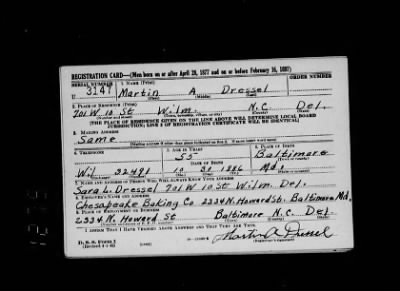 REGISTRATION CARD—(Men born on or after April 28, 1877 and on or before February 16, 1897)
SERIAL NUMBER 1. NAME (Print) ORDER NUMBER
U 3147 Martin A Dressel
(First) (Middle) (Last)
2. PLACE OF RESIDENCE (Print)
701 W 10 St Wilm. N.C. Del.
(Number and street) (Town, township, village, or city) (County) (State)
[THE PLACE OF RESIDENCE GIVEN ON THE LINE ABOVE WILL DETERMINE LOCAL BOARD
JURISDICTION; LINE 2 OF REGISTRATION CERTIFICATE WILL BE IDENTICAL]
3. MAILING ADDRESS
Same
[Mailing address if other than place indicated on line 2. If same insert word same]
4. TELEPHONE 5. AGE IN YEARS 6. PLACE OF BIRTH
55 Baltimore
DATE OF BIRTH
Wil 32491 10 31 1886 Md.
7. NAME AND ADDRESS OF PERSON WHO WILL ALWAYS KNOW YOUR ADDRESS
Sara L. Dressel 701 W 10 St Wilm. Del.
8. EMPLOYER'S NAME AND ADDRESS
Chesapeake Baking Co 2334 N. Howard St. Baltimore Md.
9. PLACE OF EMPLOYMENT OR BUSINESS
2334 N. Howard St Baltimore N.C. Del.
I AFFIRM THAT I HAVE VERIFIED ABOVE ANSWERS AND THAT THEY ARE TRUE.
D. S. S. Form 1
(Revised 4-1-42) Martin A Dressel
(Registrant's signature)